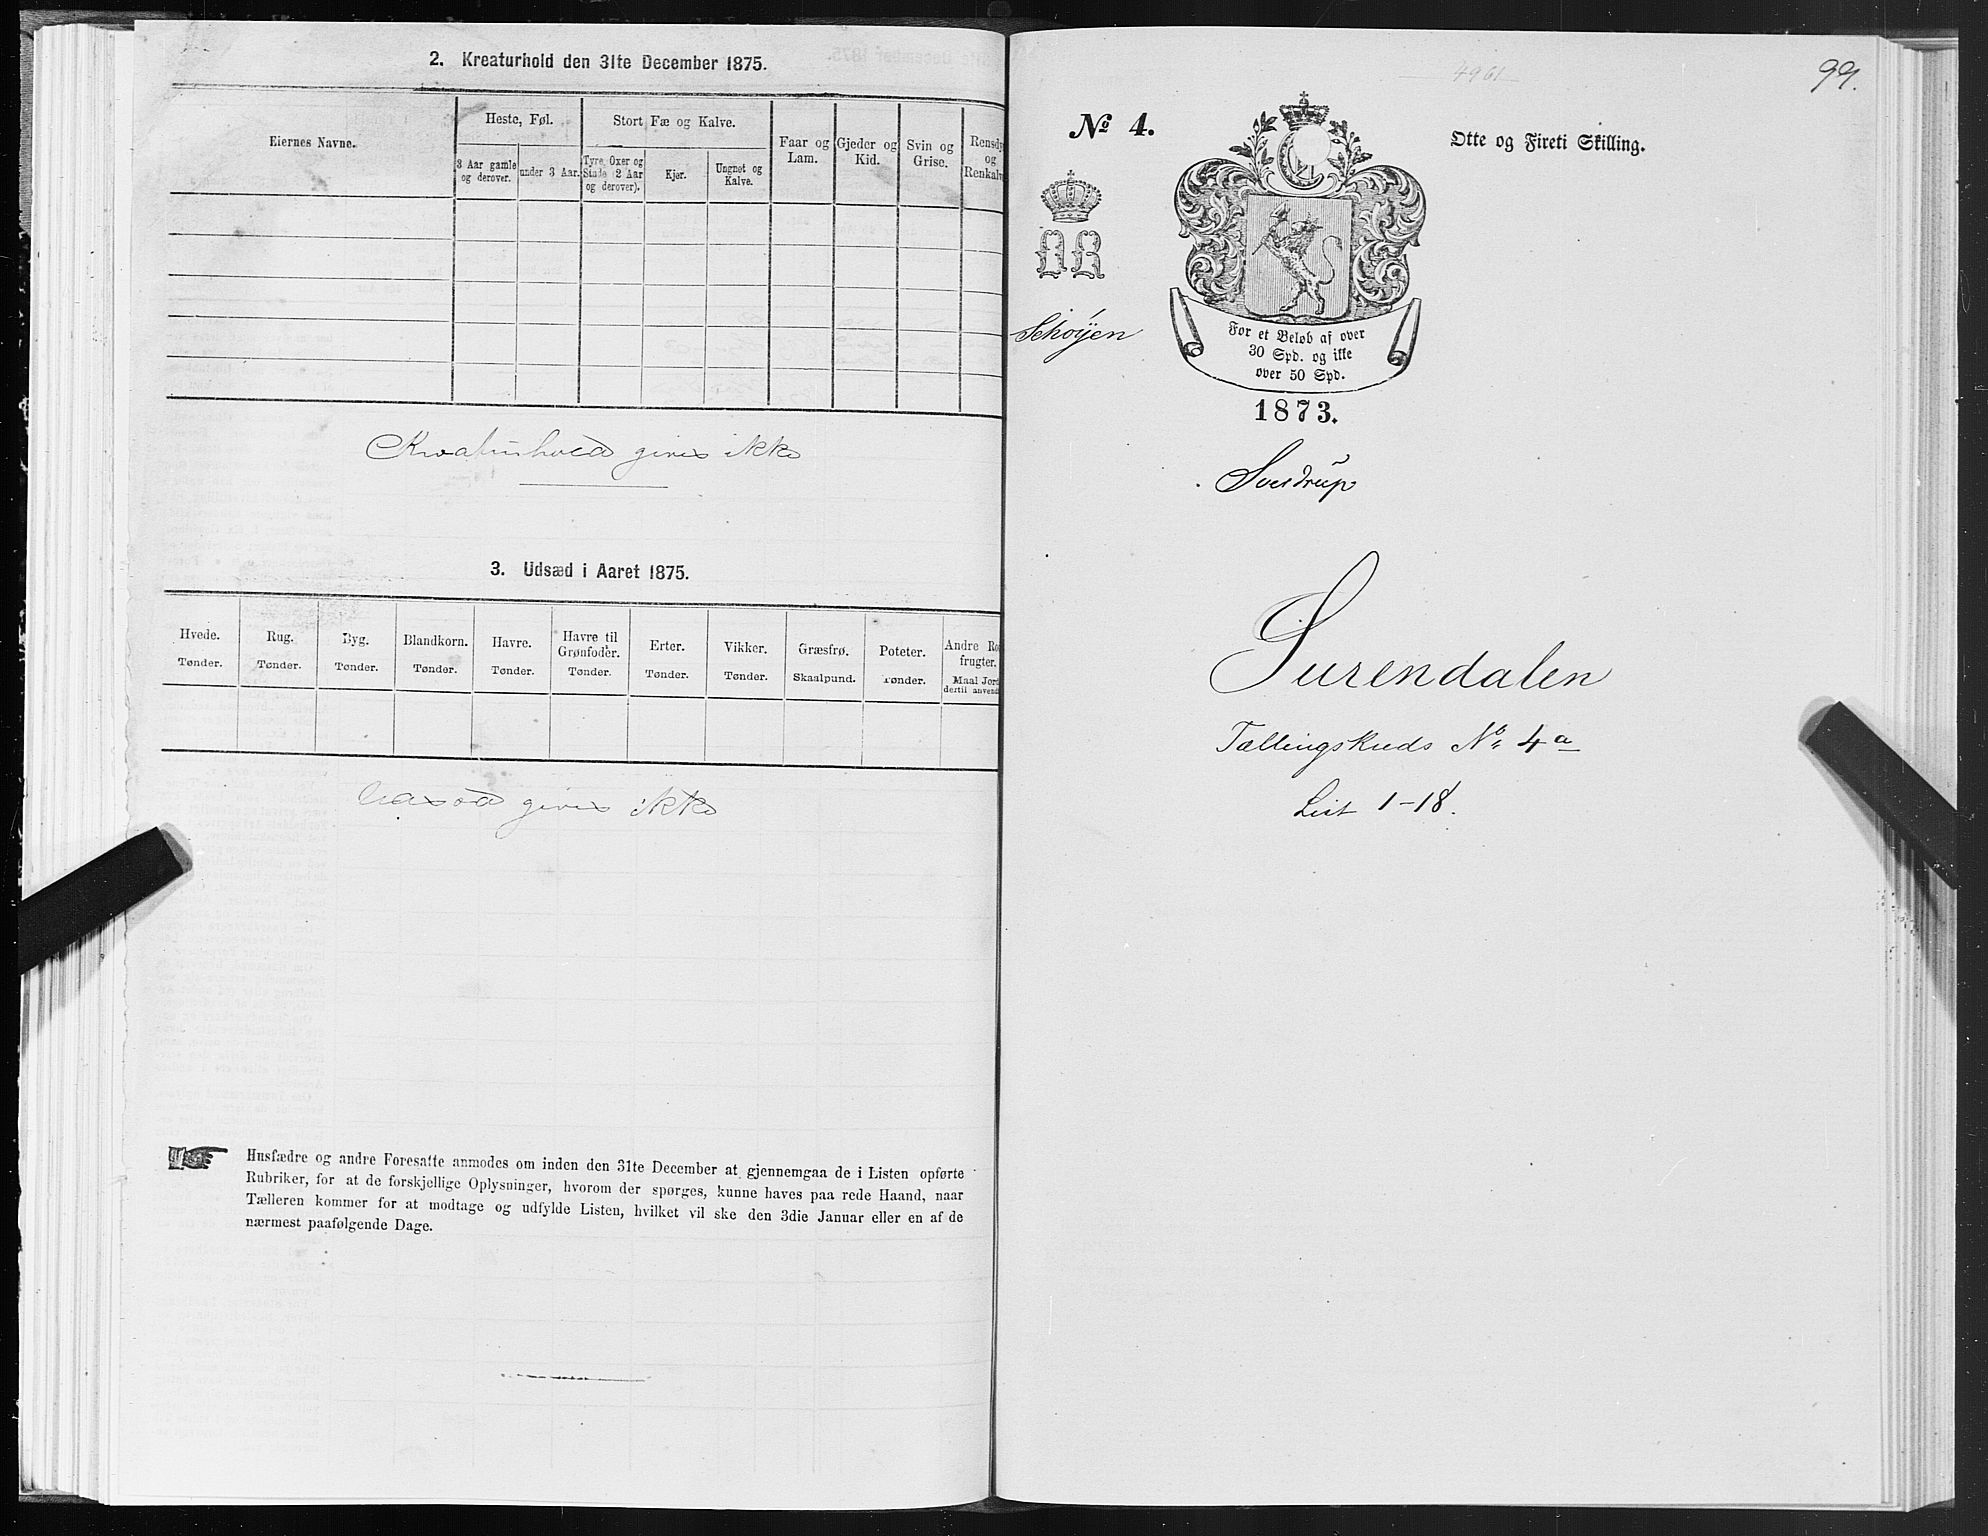 2. Kreaturhold den 31te December 1875.
Eiernes Navne.
Heste, Føl.
Stort Fæ og Kalve.
3 Aar gamle og derover.
under 3 Aar.
Tyre, Oxer og Stude (2 Aar og derover).
Kjør.
Ungnøt og Kalve.
Faar og Lam.
Gjeder og Kid.
Svin og Grise.
Rensdy
og
Renkalv
Kreaturhold gives ikke
3. Udsæd i Aaret 1875.
Hvede. Rug. Byg. Blandkorn. Havre. Havre til Grønfoder. Erter. Vikker. Græsfrø. Poteter. Andre Ro frugter.
Tønder. Tønder. Tønder. Tønder. Tønder. Tønder. Tønder. Tønder. Skaalpund. Tønder. Maal Jord dertil anvend
Udsæd gives ikke
Husfædre og andre Foresatte anmodes om inden den 31te December at gjennemgaa de i Listen opførte
Rubriker, for at de forskjellige Oplysninger, hvorom der spørges, kunne haves paa rede Haand, naar
Tælleren kommer for at modtage og udfylde Listen, hvilket vil ske den 3die Januar eller en af de
nærmest paafølgende Dage.
4961
99.
No 4.
Otte og Fireti Skilling.
Schøyen
For et Beløb af over
30 Spd. og ikke
over 50 Spd.
1873.
Sverdrup
Surendalen
Tællingskreds No. 4a
List 1-18.